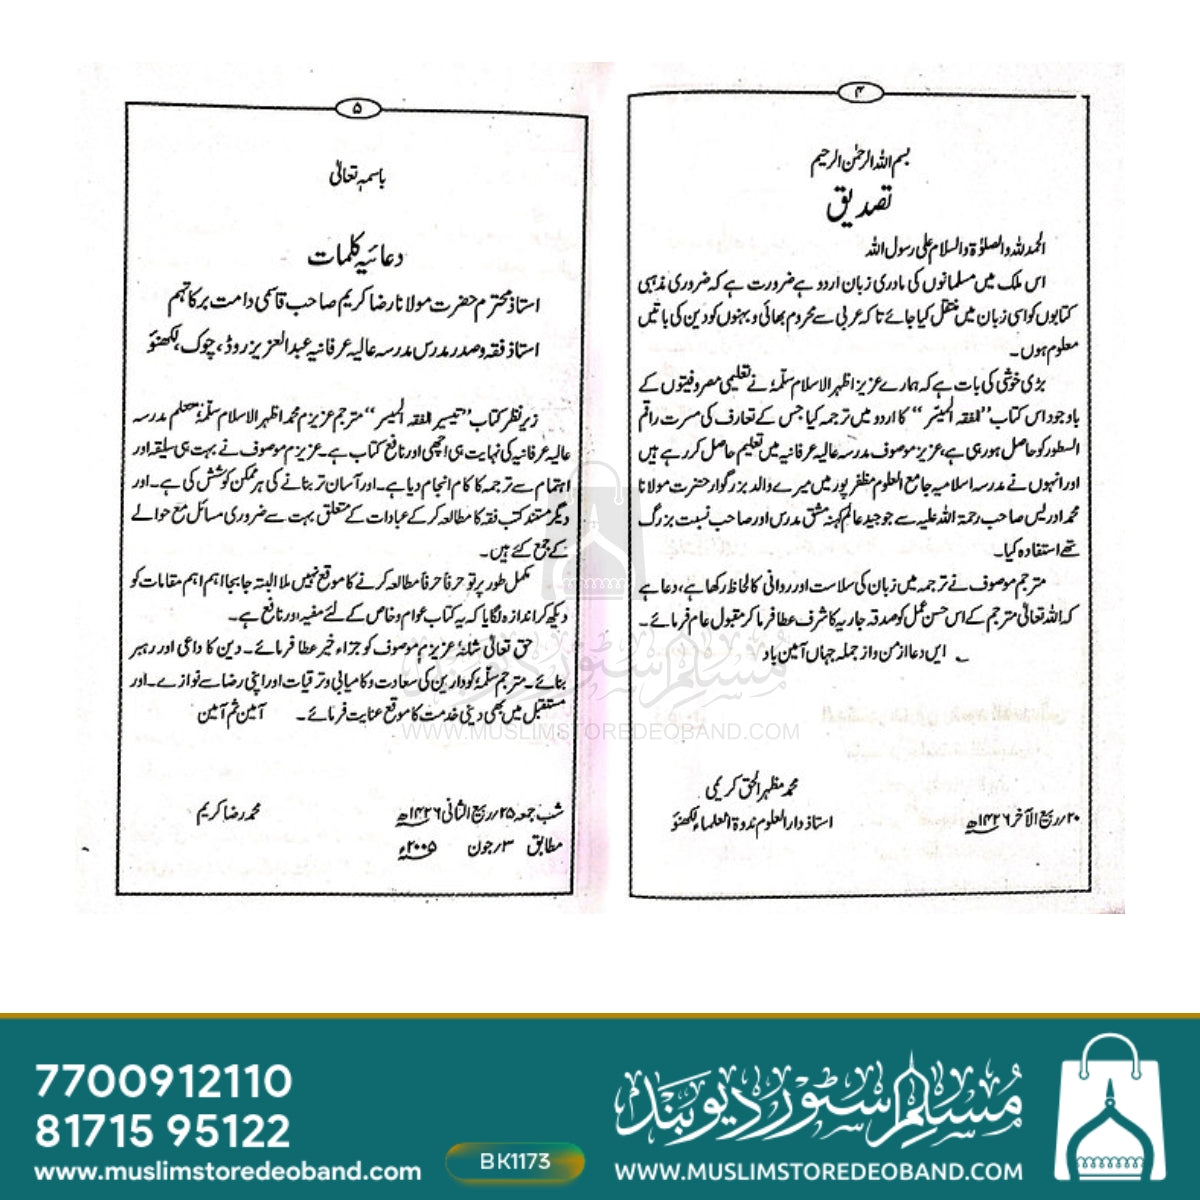 ۴
بسم اللہ الرحمٰن الرحیم
تصدیق
الحمد للہ والصلوٰۃ والسلام علی رسول اللہ
اس ملک میں مسلمانوں کی مادری زبان اردو ہے ضرورت ہے کہ ضروری مذہبی
کتابوں کو اسی زبان میں منتقل کیا جائے تاکہ عربی سے محروم بھائی و بہنوں کو دین کی باتیں
معلوم ہوں۔
بڑی خوشی کی بات ہے کہ ہمارے عزیز اظہر الاسلام سلّمہٗ نے تعلیمی مصروفیتوں کے
باوجود اس کتاب "الفقہ المیسر" کا اردو میں ترجمہ کیا جس کے تعارف کی مسرت راقم
السطور کو حاصل ہو رہی ہے، عزیز موصوف مدرسہ عالیہ عرفانیہ میں تعلیم حاصل کر رہے ہیں
اور انہوں نے مدرسہ اسلامیہ جامع العلوم مظفر پور میں میرے والد بزرگوار حضرت مولانا
محمد ادریس صاحب رحمۃ اللہ علیہ سے جو جید عالم کہنہ مشق مدرس اور صاحب نسبت بزرگ
تھے استفادہ کیا۔
مترجم موصوف نے ترجمہ میں زبان کی سلاست اور روانی کا لحاظ رکھا ہے، دعا ہے
کہ اللہ تعالیٰ مترجم کے اس حسن عمل کو صدقہ جاریہ کا شرف عطا فرما کر مقبول عام فرمائے۔
ایں دعا از من و از جملہ جہاں آمین باد
محمد مظہر الحق کریمی
استاذ دارالعلوم ندوۃ العلماء لکھنؤ
۲۰/ربیع الآخر ۱۴۲۶ھ
۵
باسمہٖ تعالیٰ
دعائیہ کلمات
استاذ محترم حضرت مولانا رضا کریم صاحب قاسمی دامت برکاتہم
استاذ فقہ و صدر مدرس مدرسہ عالیہ عرفانیہ عبدالعزیز روڈ، چوک، لکھنؤ
زیر نظر کتاب "تیسیر الفقہ المیسر" مترجم عزیزم محمد اظہر الاسلام سلّمہٗ متعلم مدرسہ
عالیہ عرفانیہ کی نہایت ہی اچھی اور نافع کتاب ہے۔ عزیزم موصوف نے بہت ہی سلیقہ اور
اہتمام سے ترجمہ کا کام انجام دیا ہے۔ اور آسان تر بنانے کی ہر ممکن کوشش کی ہے۔ اور
دیگر مستند کتب فقہ کا مطالعہ کر کے عبادات کے متعلق بہت سے ضروری مسائل مع حوالے
کے جمع کئے ہیں۔
مکمل طور پر تو حرفاً حرفاً مطالعہ کرنے کا موقع نہیں ملا البتہ جابجا اہم اہم مقامات کو
دیکھ کر اندازہ لگایا کہ یہ کتاب عوام و خاص کے لئے مفید اور نافع ہے۔
حق تعالیٰ شانہٗ عزیزم موصوف کو جزاء خیر عطا فرمائے۔ دین کا داعی اور رہبر
بنائے۔ مترجم سلّمہٗ کو دارین کی سعادت و کامیابی و ترقیات اور اپنی رضا سے نوازے۔ اور
مستقبل میں بھی دینی خدمت کا موقع عنایت فرمائے۔ آمین ثم آمین
محمد رضا کریم
شب جمعہ ۲۵/ربیع الثانی ۱۴۲۶ھ
مطابق ۳/جون ۲۰۰۵ء
مسلم سٹور دیوبند
WWW.MUSLIMSTOREDEOBAND.COM
7700912110
81715 95122
www.muslimstoredeoband.com
BK1173
مسلم سٹور دیوبند
WWW.MUSLIMSTOREDEOBAND.COM